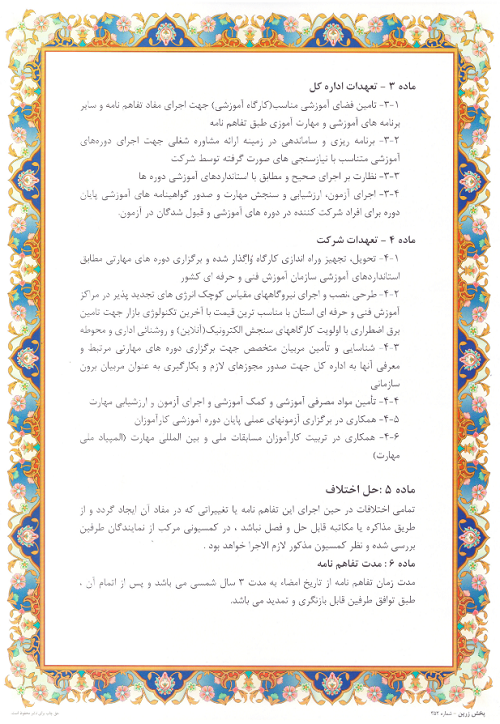 ماده ۳ - تعهدات اداره کل
۳-۱- تامین فضای آموزشی مناسب(کارگاه آموزشی) جهت اجرای مفاد تفاهم نامه و سایر
برنامه های آموزشی و مهارت آموزی طبق تفاهم نامه
۳-۲- برنامه ریزی و ساماندهی در زمینه ارائه مشاوره شغلی جهت اجرای دوره‌های
آموزشی متناسب با نیازسنجی های صورت گرفته توسط شرکت
۳-۳- نظارت بر اجرای صحیح و مطابق با استانداردهای آموزشی دوره ها
۳-۴- اجرای آزمون، ارزشیابی و سنجش مهارت و صدور گواهینامه های آموزشی پایان
دوره برای افراد شرکت کننده در دوره های آموزشی و قبول شدگان در آزمون.
ماده ۴ - تعهدات شرکت
۴-۱- تحویل، تجهیز وراه اندازی کارگاه واگذار شده و برگزاری دوره های مهارتی مطابق
استانداردهای آموزشی سازمان آموزش فنی و حرفه ای کشور
۴-۲- طرحی ،نصب و اجرای نیروگاههای مقیاس کوچک انرژی های تجدید پذیر در مراکز
آموزش فنی و حرفه ای استان با مناسب ترین قیمت با آخرین تکنولوژی بازار جهت تامین
برق اضطراری با اولویت کارگاههای سنجش الکترونیک(آنلاین) و روشنائی اداری و محوطه
۴-۳- شناسایی و تأمین مربیان متخصص جهت برگزاری دوره های مهارتی مرتبط و
معرفی آنها به اداره کل جهت صدور مجوزهای لازم و بکارگیری به عنوان مربیان برون
سازمانی
۴-۴- تأمین مواد مصرفی آموزشی و کمک آموزشی و اجرای آزمون و ارزشیابی مهارت
۴-۵- همکاری در برگزاری آزمونهای عملی پایان دوره آموزشی کارآموزان
۴-۶- همکاری در تربیت کارآموزان مسابقات ملی و بین المللی مهارت (المپیاد ملی
مهارت)
ماده ۵ :حل اختلاف
تمامی اختلافات در حین اجرای این تفاهم نامه یا تغییراتی که در مفاد آن ایجاد گردد و از
طریق مذاکره یا مکاتبه قابل حل و فصل نباشد ، در کمسیونی مرکب از نمایندگان طرفین
بررسی شده و نظر کمسیون مذکور لازم الاجرا خواهد بود .
ماده ۶ : مدت تفاهم نامه
مدت زمان تفاهم نامه از تاریخ امضاء به مدت ۳ سال شمسی می باشد و پس از اتمام آن ،
طبق توافق طرفین قابل بازنگری و تمدید می باشد.
پخش زرین - شماره ۳۵۲